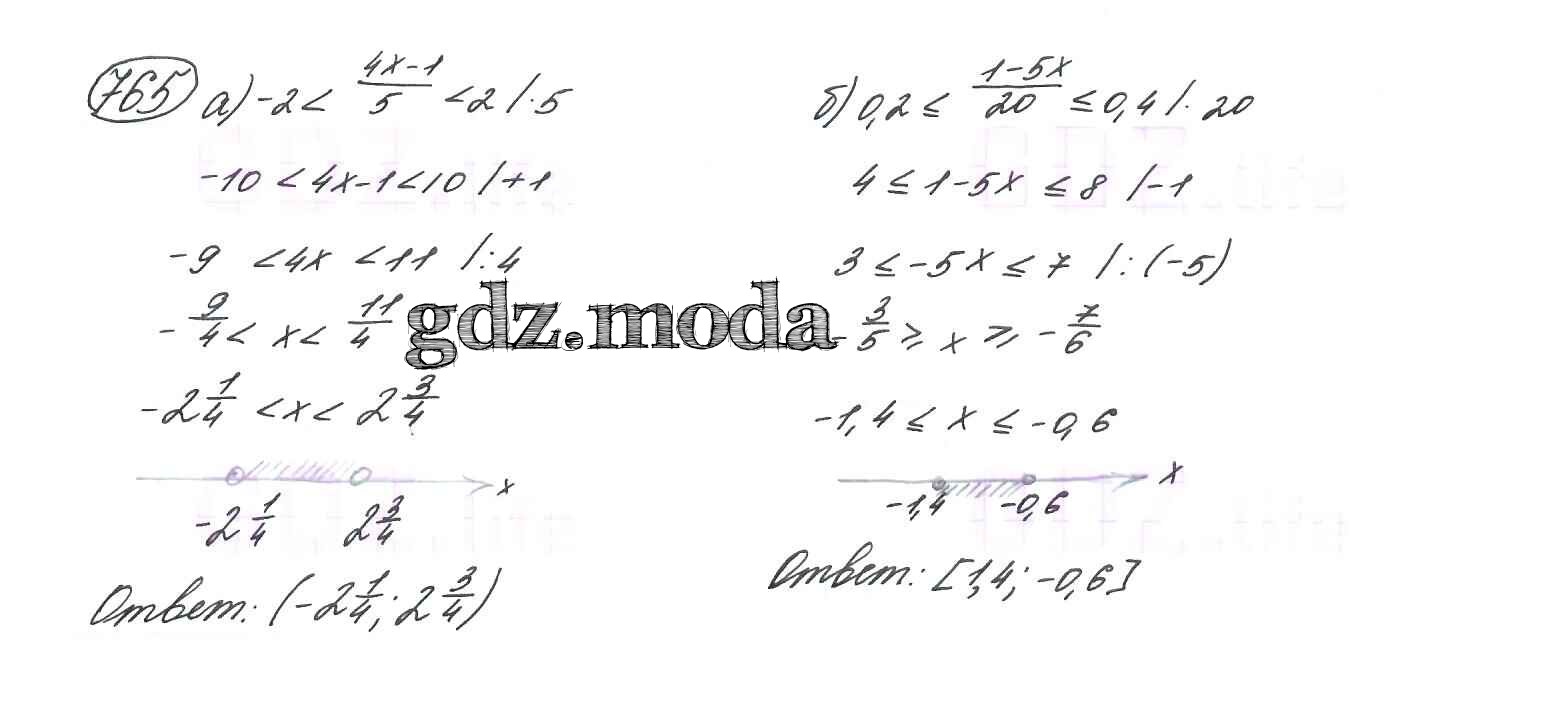 765 а) -2 < (4x-1)/5 < 2 /·5
-10 < 4x-1 < 10 /+1
-9 < 4x < 11 /:4
- 9/4 < x < 11/4
-2 1/4 < x < 2 3/4
x
-2 1/4 2 3/4
Ответ: (-2 1/4; 2 3/4)
б) 0,2 ≤ (1-5x)/20 ≤ 0,4 /· 20
4 ≤ 1-5x ≤ 8 /-1
3 ≤ -5x ≤ 7 /: (-5)
- 3/5 ≥ x ≥ - 7/6
-1,4 ≤ x ≤ -0,6
x
-1,4 -0,6
Ответ: [1,4; -0,6]
gdz.moda